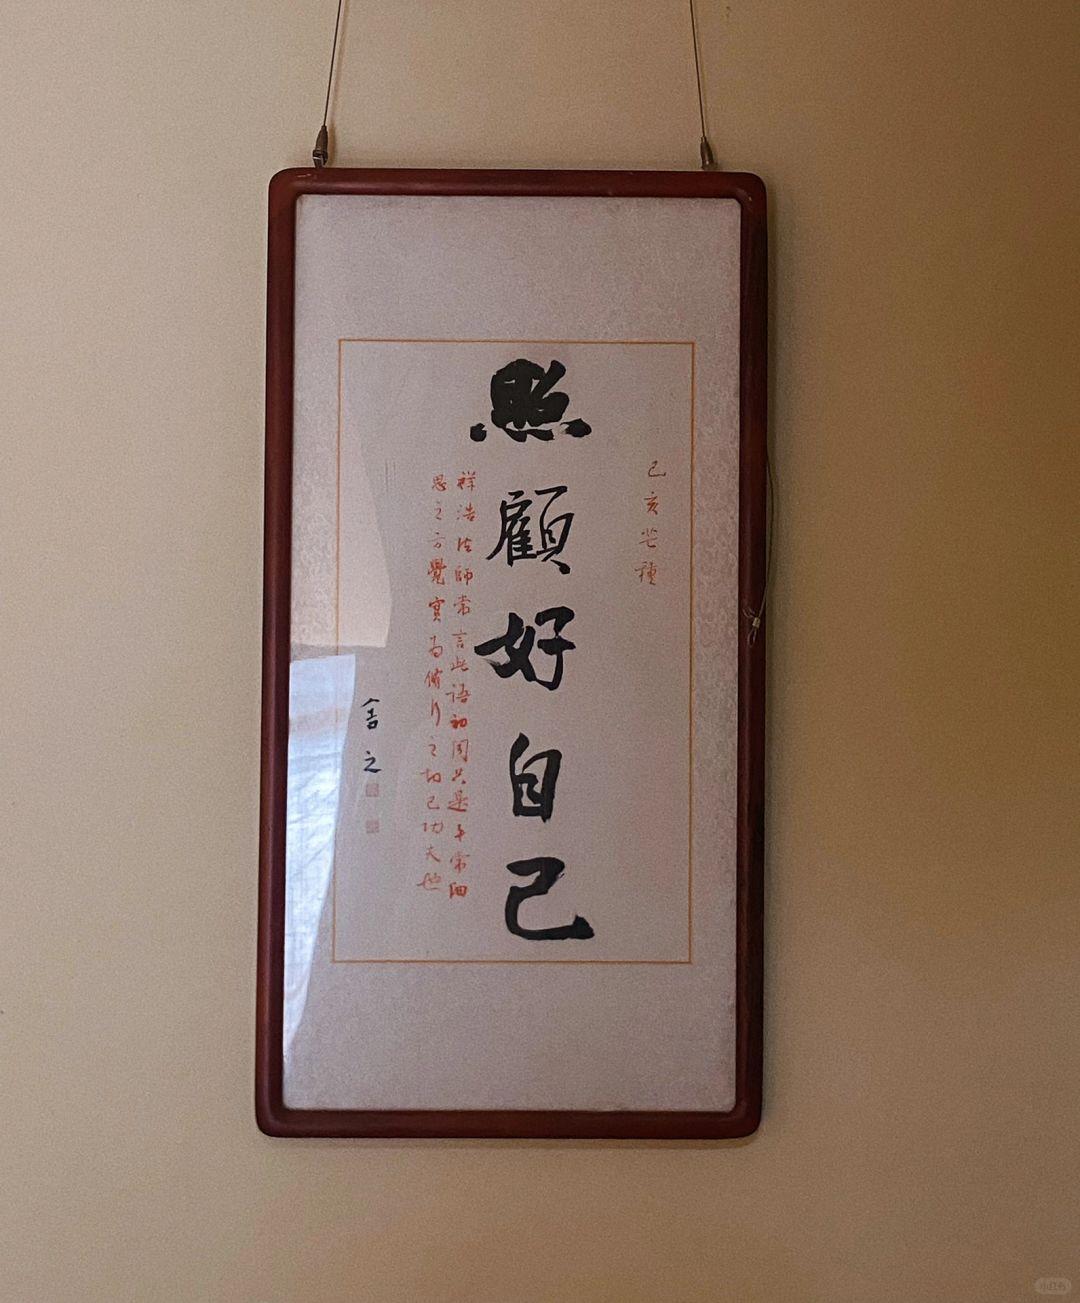 己亥芒種
照顧好自己
祥浩法師常言此語初聞只是平常細
思之方覺實為脩行之切己功夫也
舍之
小红书